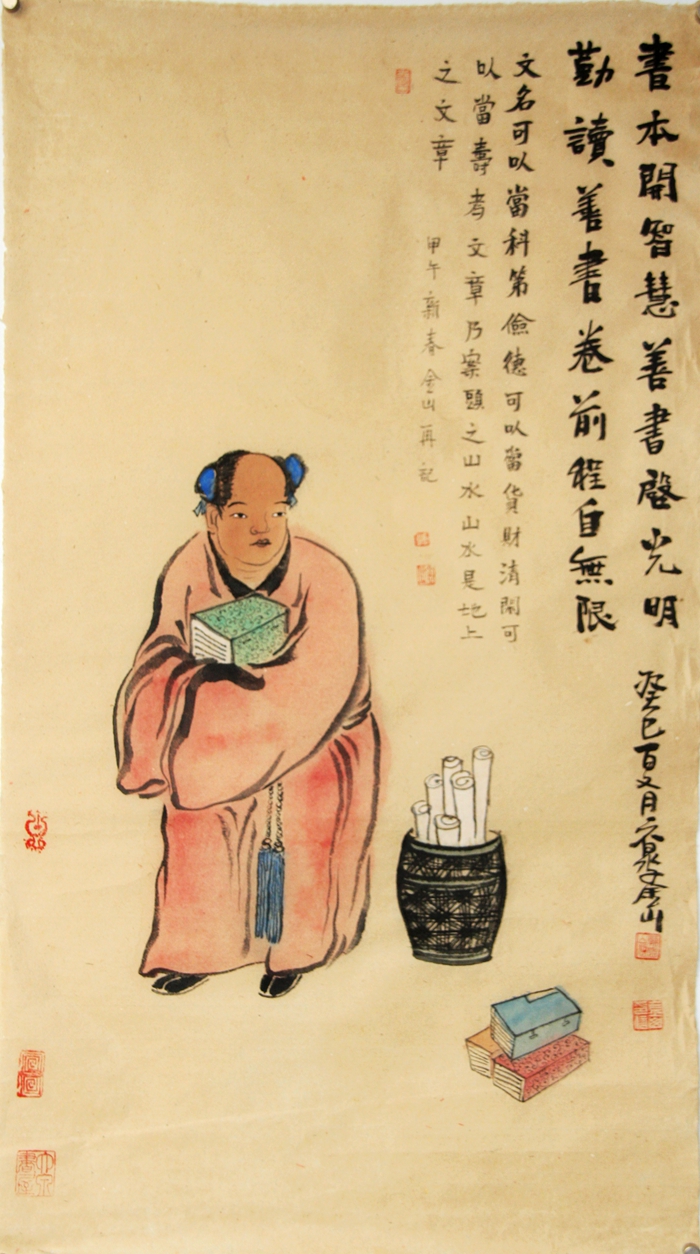 書本開智慧善書啓光明
勤讀善書卷前程自無限
癸巳百又月 金山
文名可以當科第儉德可以當貨財清閑可
以當壽考文章乃案頭之山水山水是地上
之文章
甲午新春金山再記